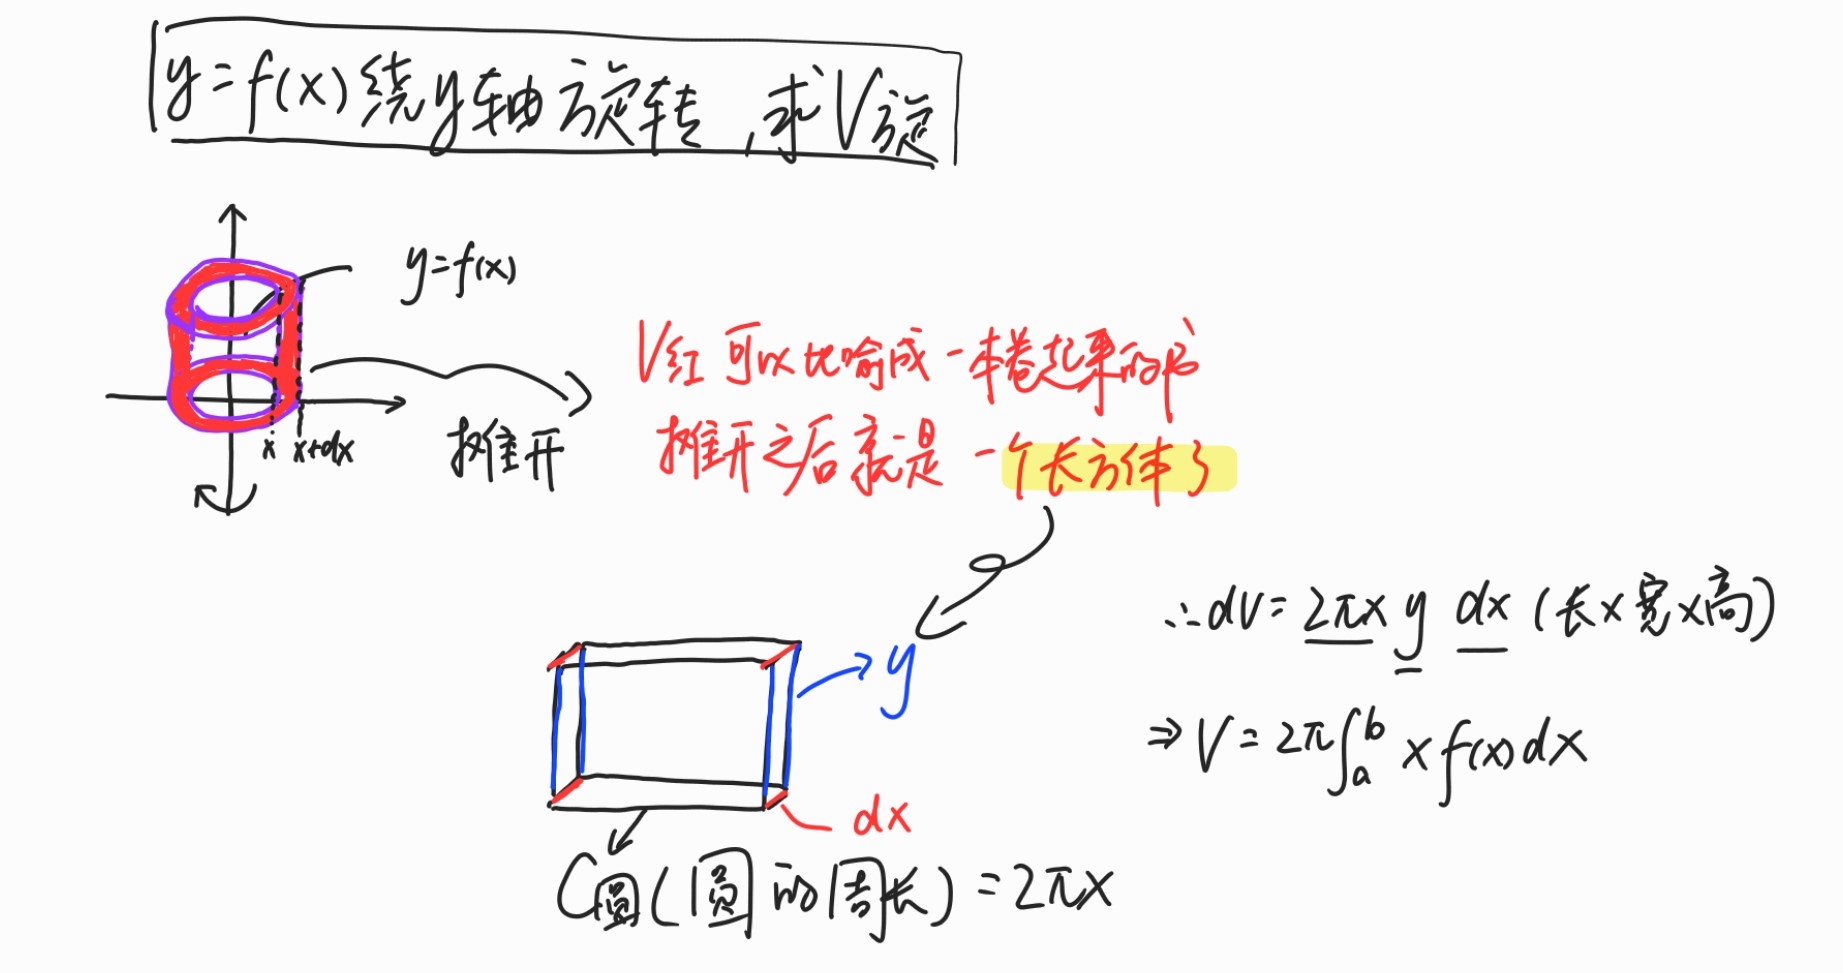 y=f(x)绕y轴旋转,求V旋
y=f(x)
x
x+dx
摊开
V红可以比喻成一本卷起来的书
摊开之后就是一个长方体了
y
dx
C圆(圆的周长)=2πx
∴dV=2πx y dx (长×宽×高)
⇒V=2π∫ₐᵇ x f(x)dx